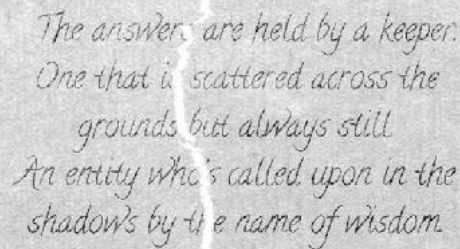 The answers are held by a keeper.
One that is scattered across the
grounds but always still
An entity who's called upon in the
shadows by the name of wisdom